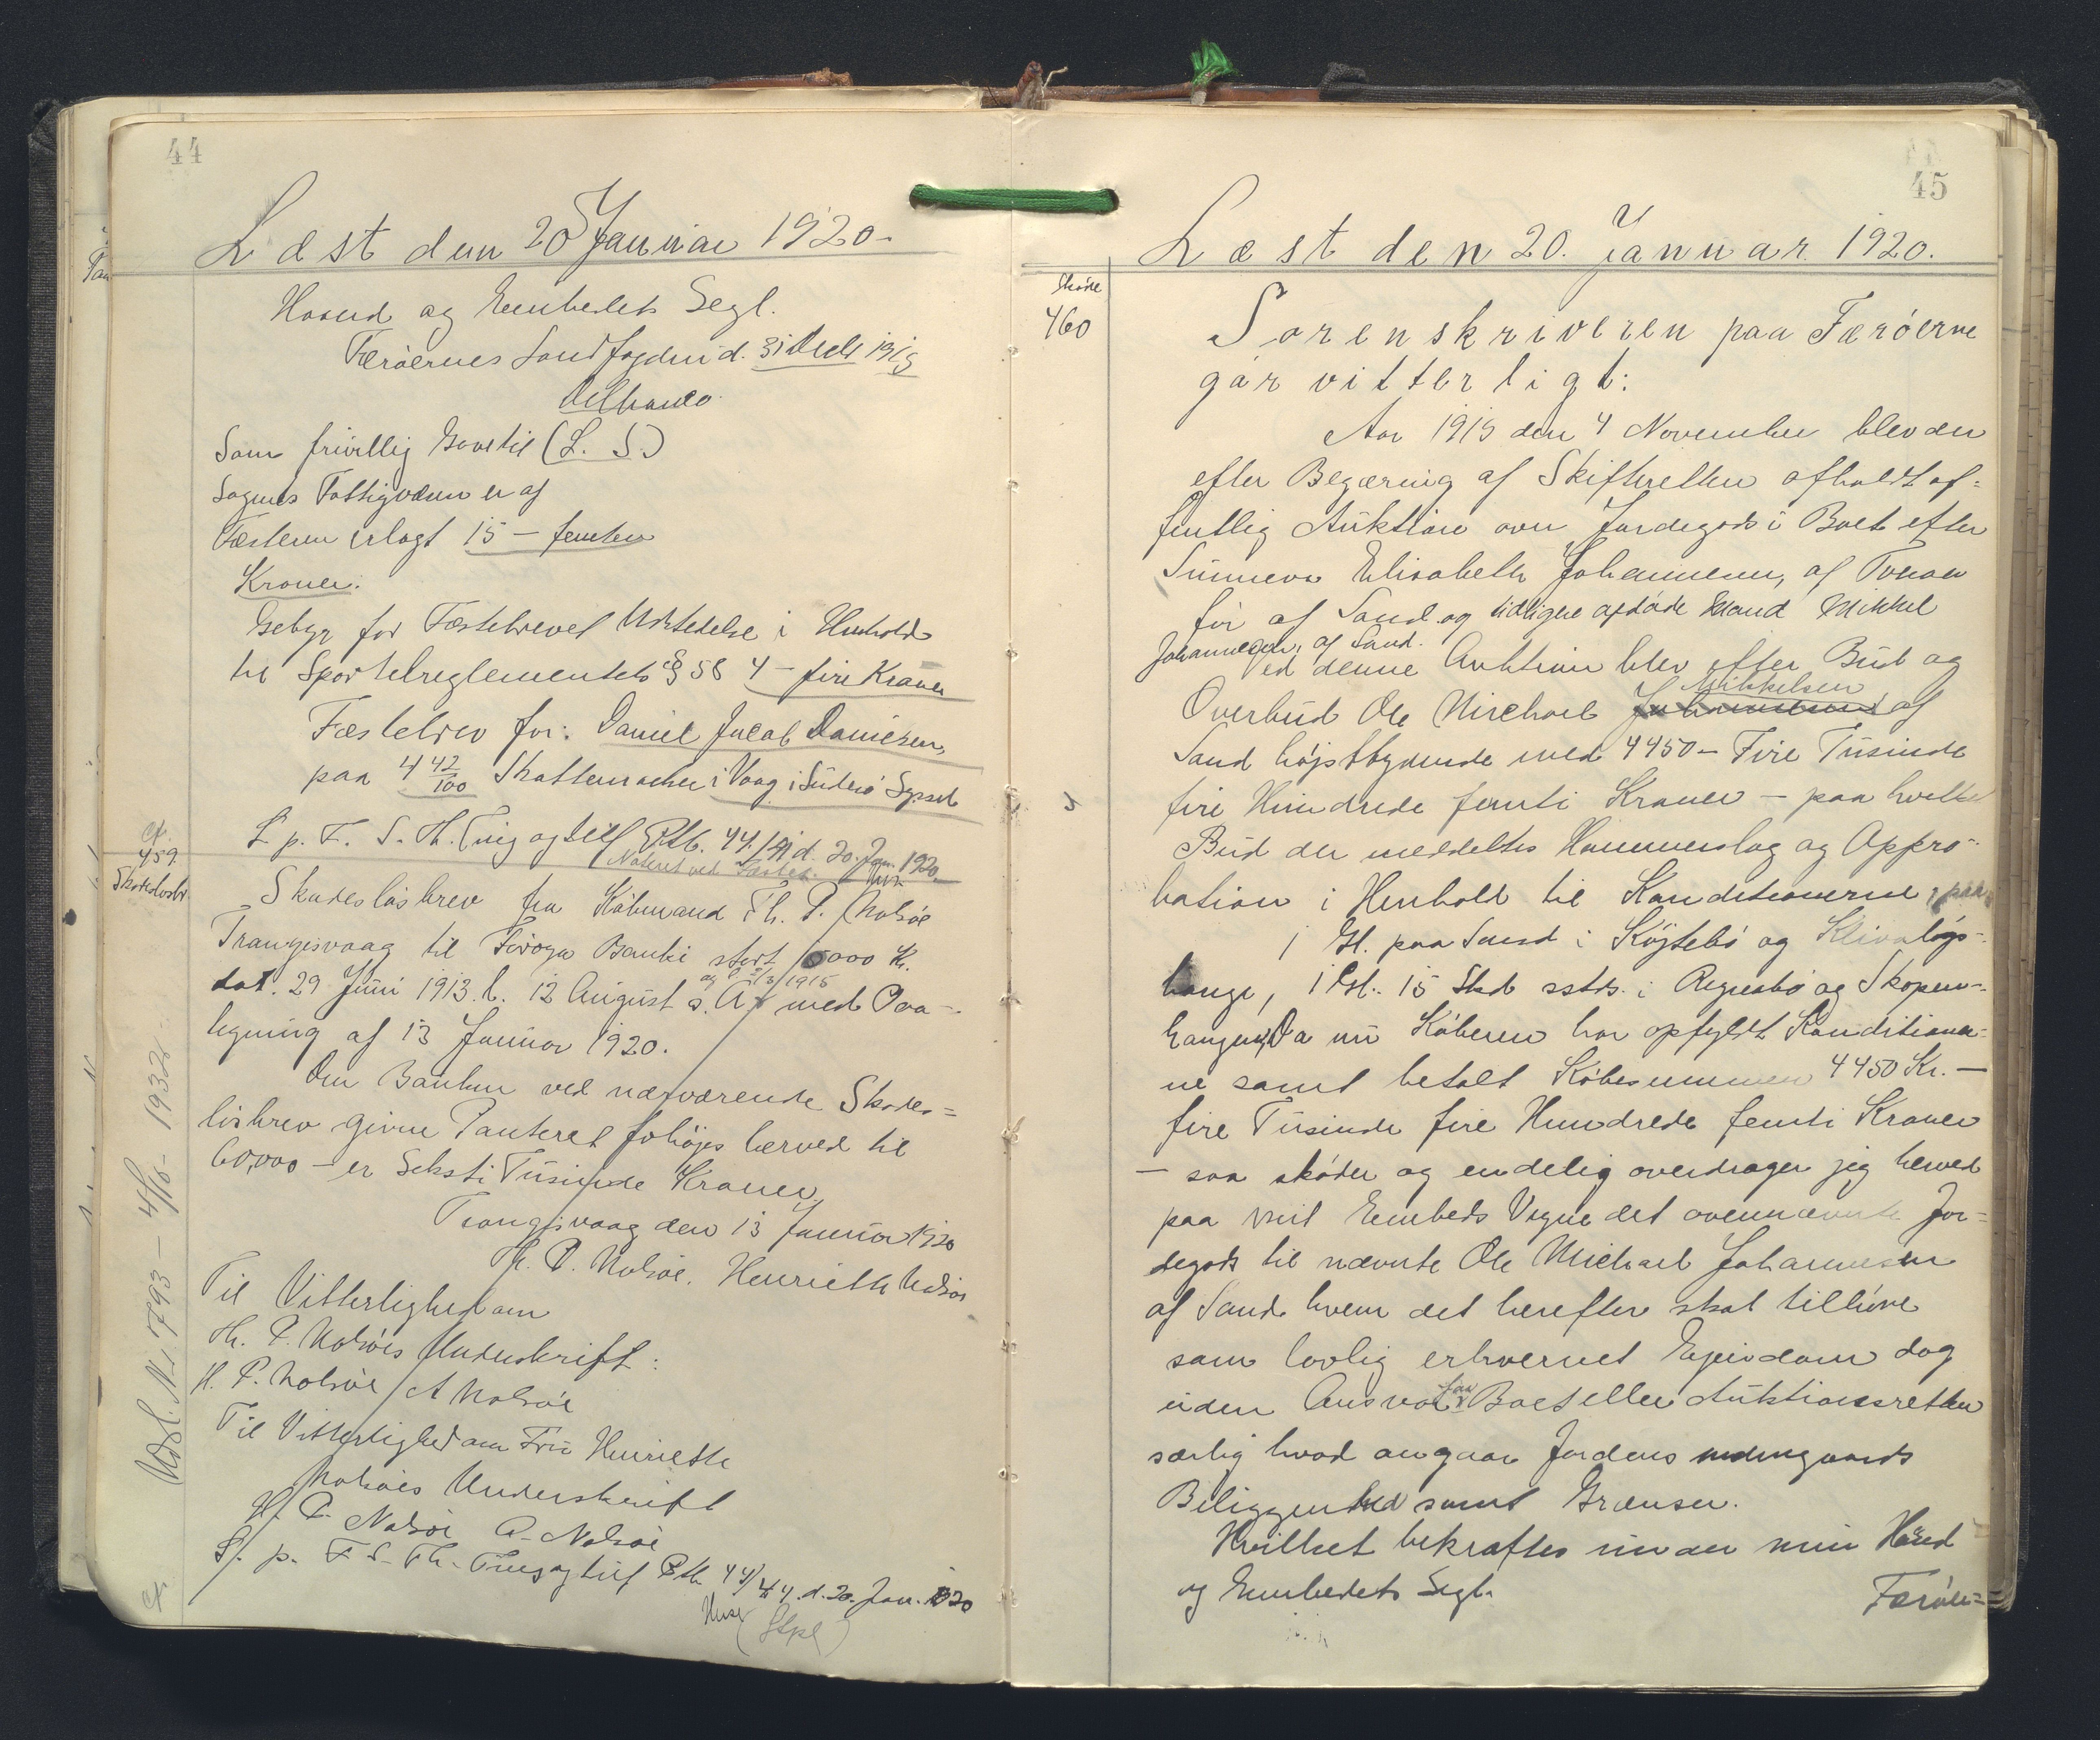 44
Læst den 20 Januar 1920.
Haand og Embedets Segl.
Færøernes Landfogderi d. 31 Decbr 1919
Som frivillig Gave til (L. S.)
Sognets Fattigvæsen er af
Fæsteren erlagt 15 – femten
Kroner.
Gebyr for Fæstebrevet Udstedelse i Henhold
til Sportelreglementets § 58 4 – fire Kroner
Fæstebrev for: Daniel Jacob Danielsen,
paa 4 42/100 Skattemarker i Vaag i Suderø Syssel
L. p. F. S. Th. Ting og tilf Ptb. 44/ d. 20. Jan. 1920.
Noteret ved Fæstet.
cf.
459
Skadesløsbr
Skadesløsbrev fra Købmand Th. P. Nolsøe
Trangisvaag til Føroya Banki stort 0000 Kr.
dat. 29 Juni 1913. l. 12 August s. A. med Paa-
og 1915
tegning af 13 Januar 1920.
Den Banken ved nærværende Skades=
løsbrev givne Panteret forhøjes herved til
60,000 – er Seksti Tusinde Kroner,
Trangisvaag den 13 Januar 1920
Th. P. Nolsøe. Henriette Nolsøe
Til Vitterlighed om
Th. P. Nolsøes Underskrift:
H. P. Nolsøe / A Nolsøe
Til Vitterlighed om Fru Henriette
Nolsøes Underskrift
H. P. Nolsøe A. Nolsøe
L. p. F. S. Th. Ting og tilf Ptb 44/44. d. 20. Jan. 1920
(Stpl)
Udsl. No. 793 – 4/10 – 1932
cf
45
Læst den 20. Januar 1920.
Skøde
460
Sorenskriveren paa Færøerne
gør vitterligt:
Aar 1919 den 4 November blev der
efter Begæring af Skifteretten afholdt of=
fentlig Auktion over Jordegods i Boet efter
Sunneva Elisabeth Johannesen, af Tveraa
før af Sand og tidligere afdøde Mand Mikkel
Johannesen, af Sand.
Ved denne Auktion blev efter Bud og
Mikkelsen
Overbud Ole Michael Johannesen af
Sand højstbydende med 4450 – Fire Tusinde
fire Hundrede femti Kroner – paa hvilket
Bud der meddeltes Hammerslag og Appro-
bation i Henhold til Konditionerne, paa
1 Gl. paa Sand i Køjtebø og Klivaløgs-
hauge, 1 Gl. 15 Skd sstds. i Regnebø og Skopun-
haugen, Da nu Køberen har opfyldt Konditioner=
ne samt betalt Købesummen 4450 Kr. –
fire Tusinde fire Hundrede femti Kroner
– saa skøder og endelig overdrager jeg herved
paa mit Embeds Vegne det ovennævnte Jor=
degods til nævnte Ole Michael Johannesen
af Sand hvem det herefter skal tilhøre
som lovlig erhvervet Ejendom dog
uden Ansvar for Boet eller Auktionsretten
særlig hvad angaar Jordens indengaards
Beliggenhed samt Grænser.
Hvilket bekræftes under min Haand
og Embedets Segl.
Færøer=